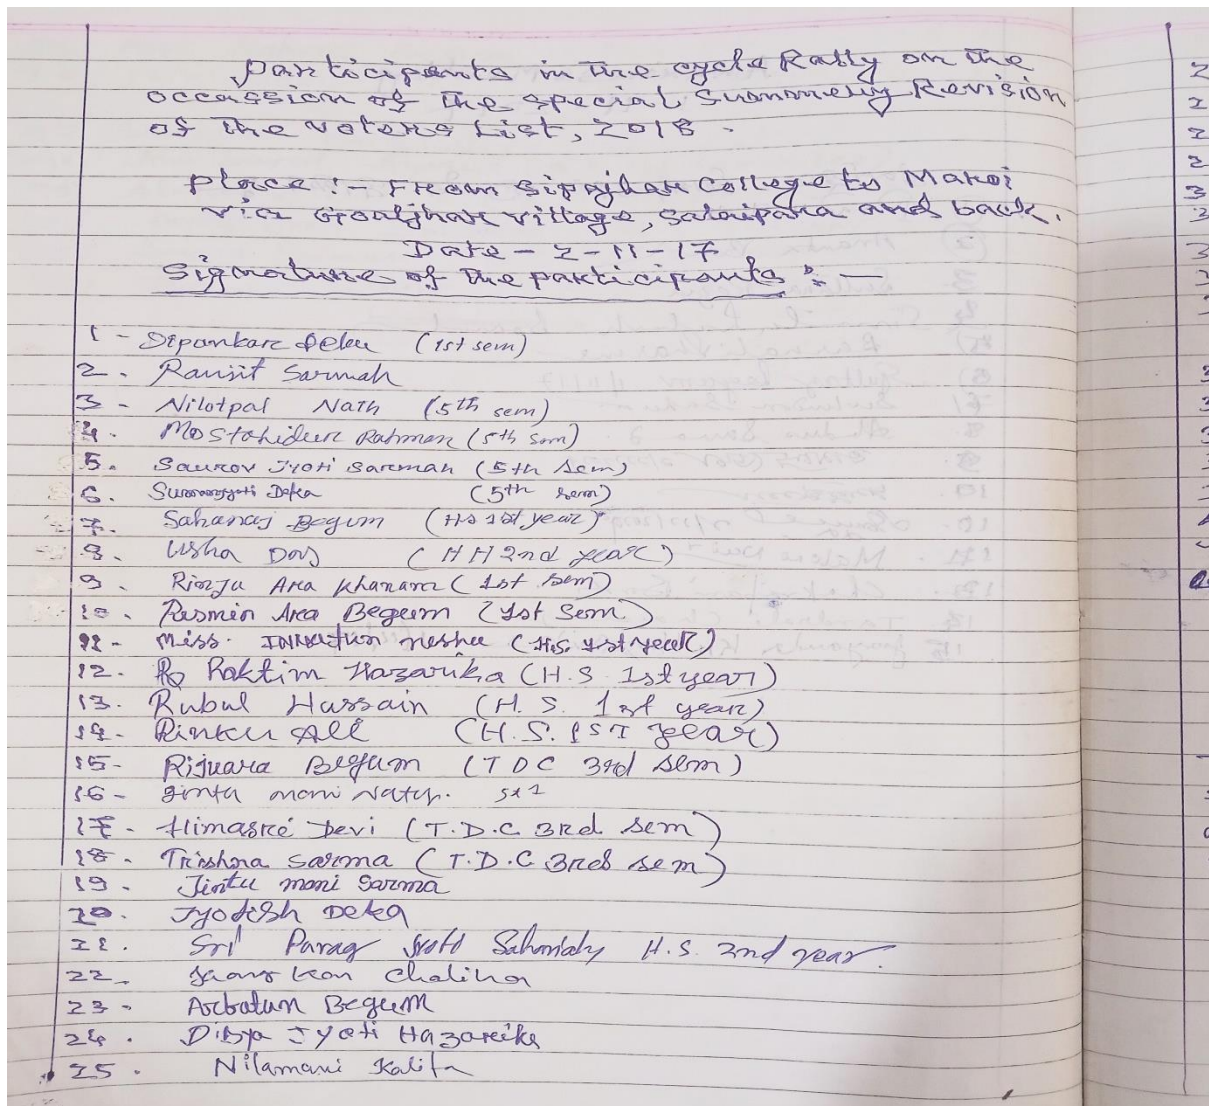 Participants in the cycle Rally on the
occassion of the special Summery Revision
of the voters List, 2018.
Place :- From Sipajhar College to Maroi
via Goaljhar village, Salaipara and back.
Date - 2-11-17
Signature of the participants :-
1 - Dipankar Deka (1st sem)
2. Ranjit Sarmah
3 - Nilotpal Nath (5th sem)
4. Mostahidur Rahman (5th sem)
5. Saurov Jyoti Sarmah (5th sem)
6. Deka (5th sem)
7. Sahanaj Begum (HS 1st year)
8. Usha Das (HH 2nd year)
9. Rinju Ara Khanam (1st sem)
10. Resmin Ara Begum (1st sem)
11 - Miss. nesha (H.S. 1st year)
12. Raktim Hazarika (H.S. 1st year)
13. Rubul Hussain (H. S. 1st year)
14 - Rinku Ali (H.S. 1ST year)
15 - Rijuara Begum (TDC 3rd sem)
16 - Jintu moni Nath.
17 - Himasré Devi (T.D.C. 3rd sem)
18 - Trishna sarma (T.D.C 3rd sem)
19 - Jintu moni Sarma
20. Jyotish Deka
21. Sri Parag H.S. 2nd year.
22 - Chaliha
23 - Arbatun Begum
24. Dibya Jyoti Hazarika
25. Nilamani Kalita
2
2
2
2
3
3
3